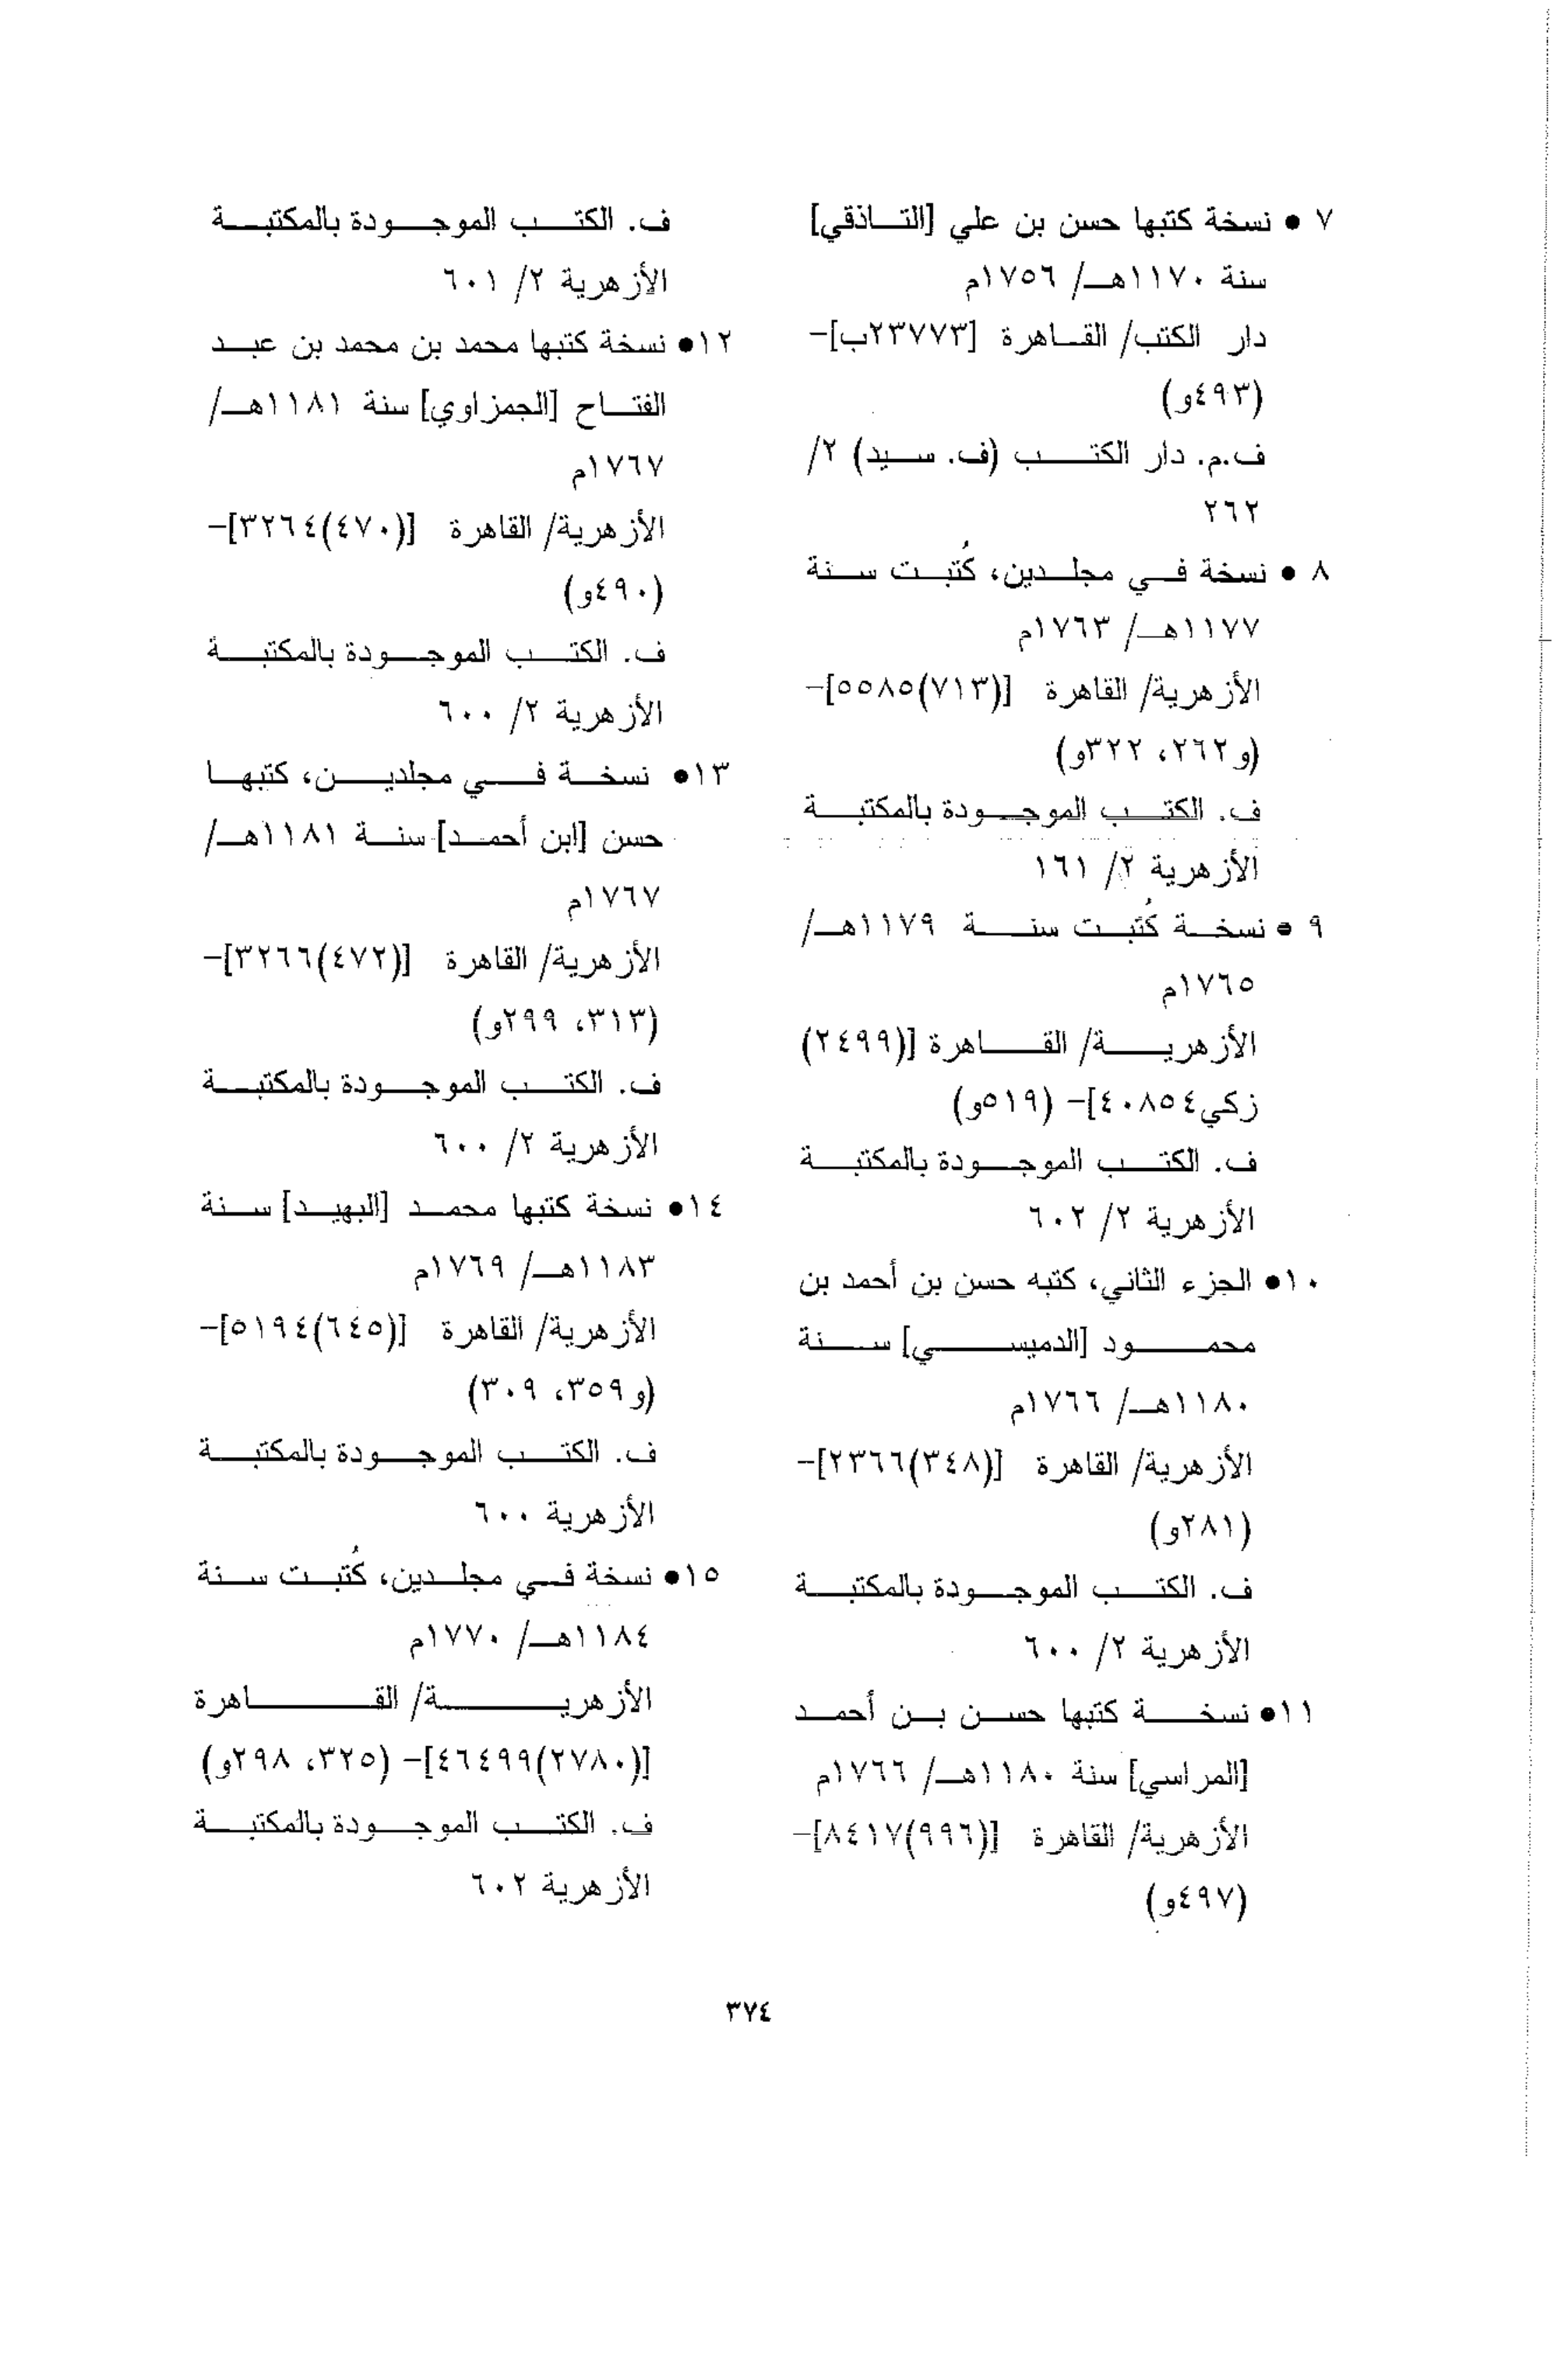 ٧ • نسخة كتبها حسن بن علي [التاذقي]
سنة ١١٧٠هـ/ ١٧٥٦م
دار الكتب/ القاهرة [٢٣٧٧٣ب]-
(٤٩٣و)
ف.م. دار الكتب (ف. سيد) ٢/
٢٦٢
٨ • نسخة في مجلدين، كُتبت سنة
١١٧٧هـ/ ١٧٦٣م
الأزهرية/ القاهرة [(٧١٣)٥٥٨٥]-
(و٢٦٢، ٣٢٢و)
ف. الكتب الموجودة بالمكتبة
الأزهرية ٢/ ١٦١
٩ • نسخة كُتبت سنة ١١٧٩هـ/
١٧٦٥م
الأزهرية/ القاهرة [(٢٤٩٩)
زكي٤٠٨٥٤]- (٥١٩و)
ف. الكتب الموجودة بالمكتبة
الأزهرية ٢/ ٦٠٢
١٠• الجزء الثاني، كتبه حسن بن أحمد بن
محمود [الدميسي] سنة
١١٨٠هـ/ ١٧٦٦م
الأزهرية/ القاهرة [(٣٤٨)٢٣٦٦]-
(٢٨١و)
ف. الكتب الموجودة بالمكتبة
الأزهرية ٢/ ٦٠٠
١١• نسخة كتبها حسن بن أحمد
[المراسي] سنة ١١٨٠هـ/ ١٧٦٦م
الأزهرية/ القاهرة [(٩٩٦)٨٤١٧]-
(٤٩٧و)
ف. الكتب الموجودة بالمكتبة
الأزهرية ٢/ ٦٠١
١٢• نسخة كتبها محمد بن محمد بن عبد
الفتاح [الجمزاوي] سنة ١١٨١هـ/
١٧٦٧م
الأزهرية/ القاهرة [(٤٧٠)٣٢٦٤]-
(٤٩٠و)
ف. الكتب الموجودة بالمكتبة
الأزهرية ٢/ ٦٠٠
١٣• نسخة في مجلدين، كتبها
حسن [ابن أحمد] سنة ١١٨١هـ/
١٧٦٧م
الأزهرية/ القاهرة [(٤٧٢)٣٢٦٦]-
(٣١٣، ٢٩٩و)
ف. الكتب الموجودة بالمكتبة
الأزهرية ٢/ ٦٠٠
١٤• نسخة كتبها محمد [البهيد] سنة
١١٨٣هـ/ ١٧٦٩م
الأزهرية/ القاهرة [(٦٤٥)٥١٩٤]-
(و٣٥٩، ٣٠٩)
ف. الكتب الموجودة بالمكتبة
الأزهرية ٦٠٠
١٥• نسخة في مجلدين، كُتبت سنة
١١٨٤هـ/ ١٧٧٠م
الأزهرية/ القاهرة
[(٢٧٨٠)٤٦٤٩٩]- (٣٢٥، ٢٩٨و)
ف. الكتب الموجودة بالمكتبة
الأزهرية ٦٠٢
٣٧٤